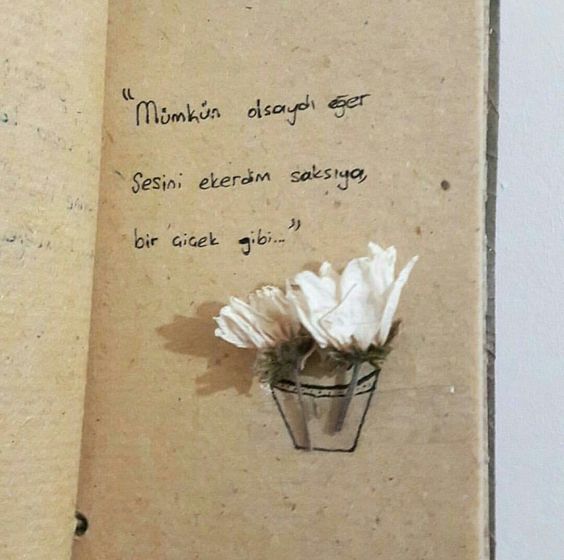 "Mümkün olsaydı eğer
Sesini ekerdim saksıya,
bir çiçek gibi..."